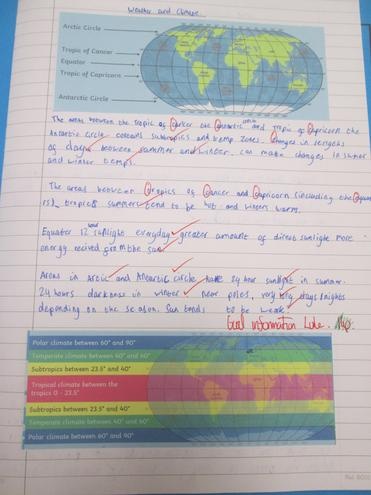 Weather and Climate
Arctic Circle
Tropic of Cancer
Equator
Tropic of Capricorn
Antarctic Circle
The areas between the tropic of Cancer the antarctic circle and tropic of Capricorn the
Antarctic Circle contains subtropics and temp zones. Changes in
of days between summer and winter. can make changes in
and winter temps.
The areas between tropics of Cancer and Capricorn (including the
is) tropics summers tend to be hot and winters warm.
Equator 12 hours sunlight everyday greater amount of direct sunlight more
energy recived from the sun.
Areas in Arctic and Antarctic circle have 24 hour sunlight in
24 hours darkness in winter near poles, very long days/nights
depending on the season. Sun tends to be weak.
Good information Luke.
Polar climate between 60° and 90°
Temperate climate between 40° and 60°
Subtropics between 23.5° and 40°
Tropical climate between the
tropics 0 - 23.5°
Subtropics between 23.5° and 40°
Temperate climate between 40° and 60°
Polar climate between 60° and 90°